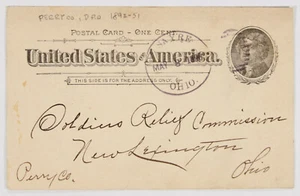 POSTAL CARD - ONE CENT
United States of America.
THIS SIDE IS FOR THE ADDRESS
MAY
OHIO
Soldiers Relief Commission
New Lexington
Perry Co. Ohio